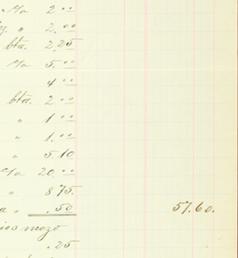 2.00
" 2.00
bta. 2,25
5.00
4.00
bta. 2.00
" 1.00
" 1.00
" 5.10
20.00
" 8 75.
.50 57.60.
mozo
.25